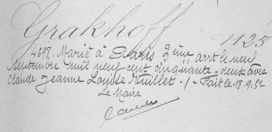 Grakhoff
1125
2698. Marié à Paris 2ème arrt le neuf
Septembre mil neuf cent cinquante-deux avec
Claude Jeanne Louise Meuillet -/- Fait le 18.9.52
Le Maire